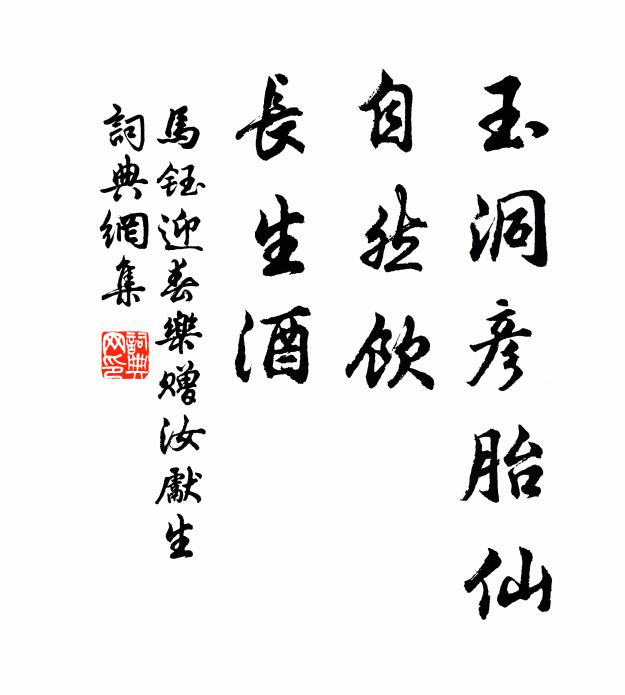 玉洞彥胎仙
自然飲
長生酒
馬鈺迎春樂贈汝獻生
詞典網集
詞典網印